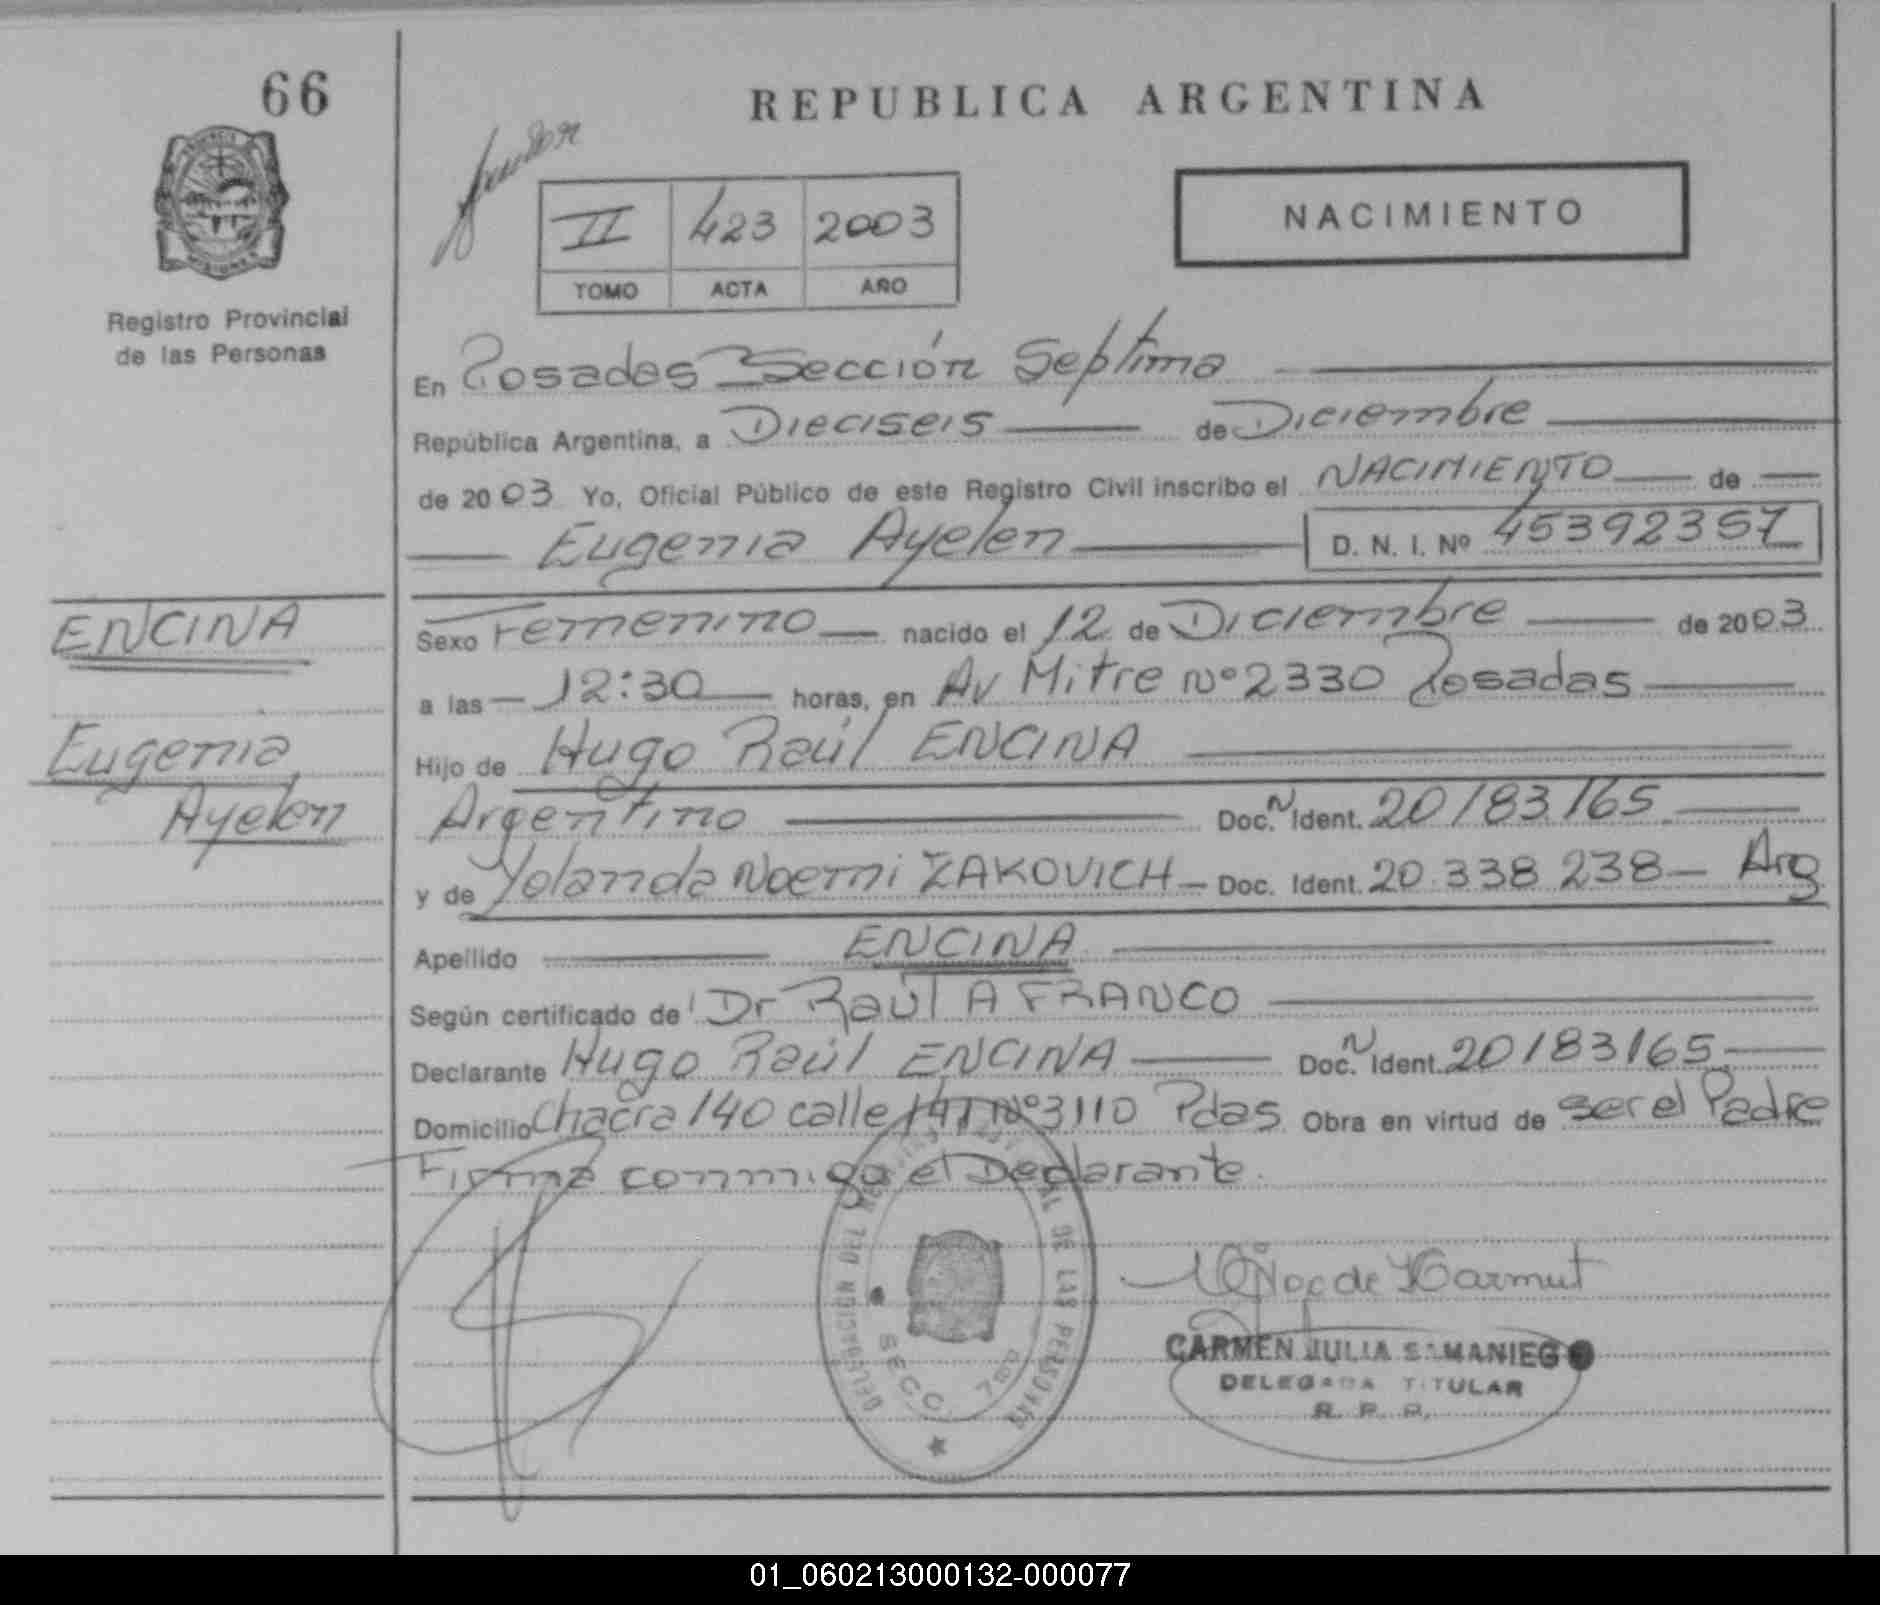 66
REPUBLICA ARGENTINA
II 423 2003
TOMO ACTA AÑO
NACIMIENTO
Registro Provincial
de las Personas
En Posadas Sección Septima
República Argentina, a Dieciseis de Diciembre
de 2003 Yo, Oficial Público de este Registro Civil inscribo el NACIMIENTO de
Eugenia Ayelen D. N. I. Nº 45392357
ENCINA
Eugenia
Ayelen
Sexo Femenino nacido el 12 de Diciembre de 2003
a las 12:30 horas, en Av Mitre Nº 2330 Posadas
Hijo de Hugo Raúl ENCINA
Argentino Doc. N Ident. 20183165
y de Yolanda Noemi ZAKOVICH Doc. Ident. 20.338.238 Arg
Apellido ENCINA
Según certificado de Dr Raúl A FRANCO
Declarante Hugo Raúl ENCINA Doc. N Ident. 20183165
Domicilio Chacra 140 calle Nº 3110 Pdas Obra en virtud de ser el Padre
Firma conmigo el Declarante.
DELEGACIÓN DEL REGISTRO PROVINCIAL DE LAS PERSONAS
SECC. 7ma
CARMEN JULIA SAMANIEGO
DELEGADA TITULAR
R. P. P.
01_060213000132-000077